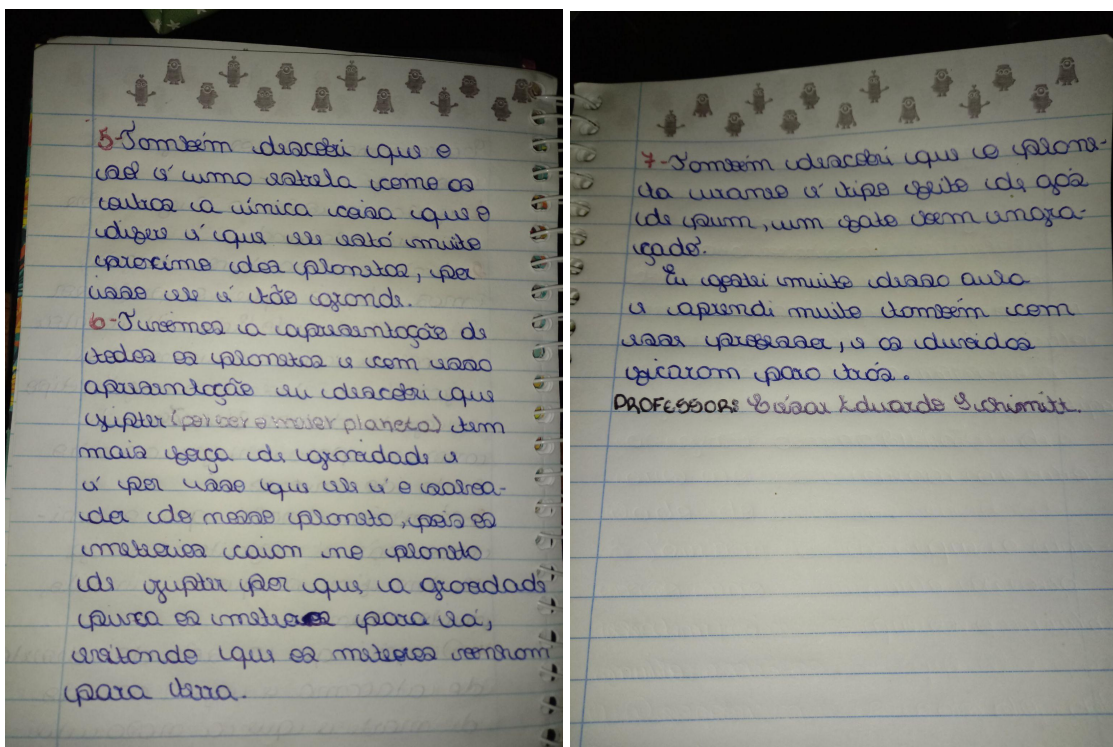 5-Também descobri que o
sol é uma estrela como as
outras a única coisa que o
difere é que ele está muito
proximo dos planetas, por
isso ele é tão grande.
6-Tivemos a apresentação de
todos os planetas e com essa
apresentação eu descobri que
jupiter (por ser o maior planeta) tem
mais força de gravidade e
é por isso que ele é o salva-
dor do nosso planeta, pois os
meteoros caion no planeta
de jupiter por que a gravidade
puxa os meteoros para lá,
evitando que os meteoros venham
para terra.
7-Também descobri que o plane-
ta urano é tipo feito de gás
de pum, um fato bem engra-
çado.
Eu gostei muito dessa aula
e aprendi muito também com
esse professor, e as duvidas
ficarom para trás.
PROFESSOR: César Eduardo Schimitt.